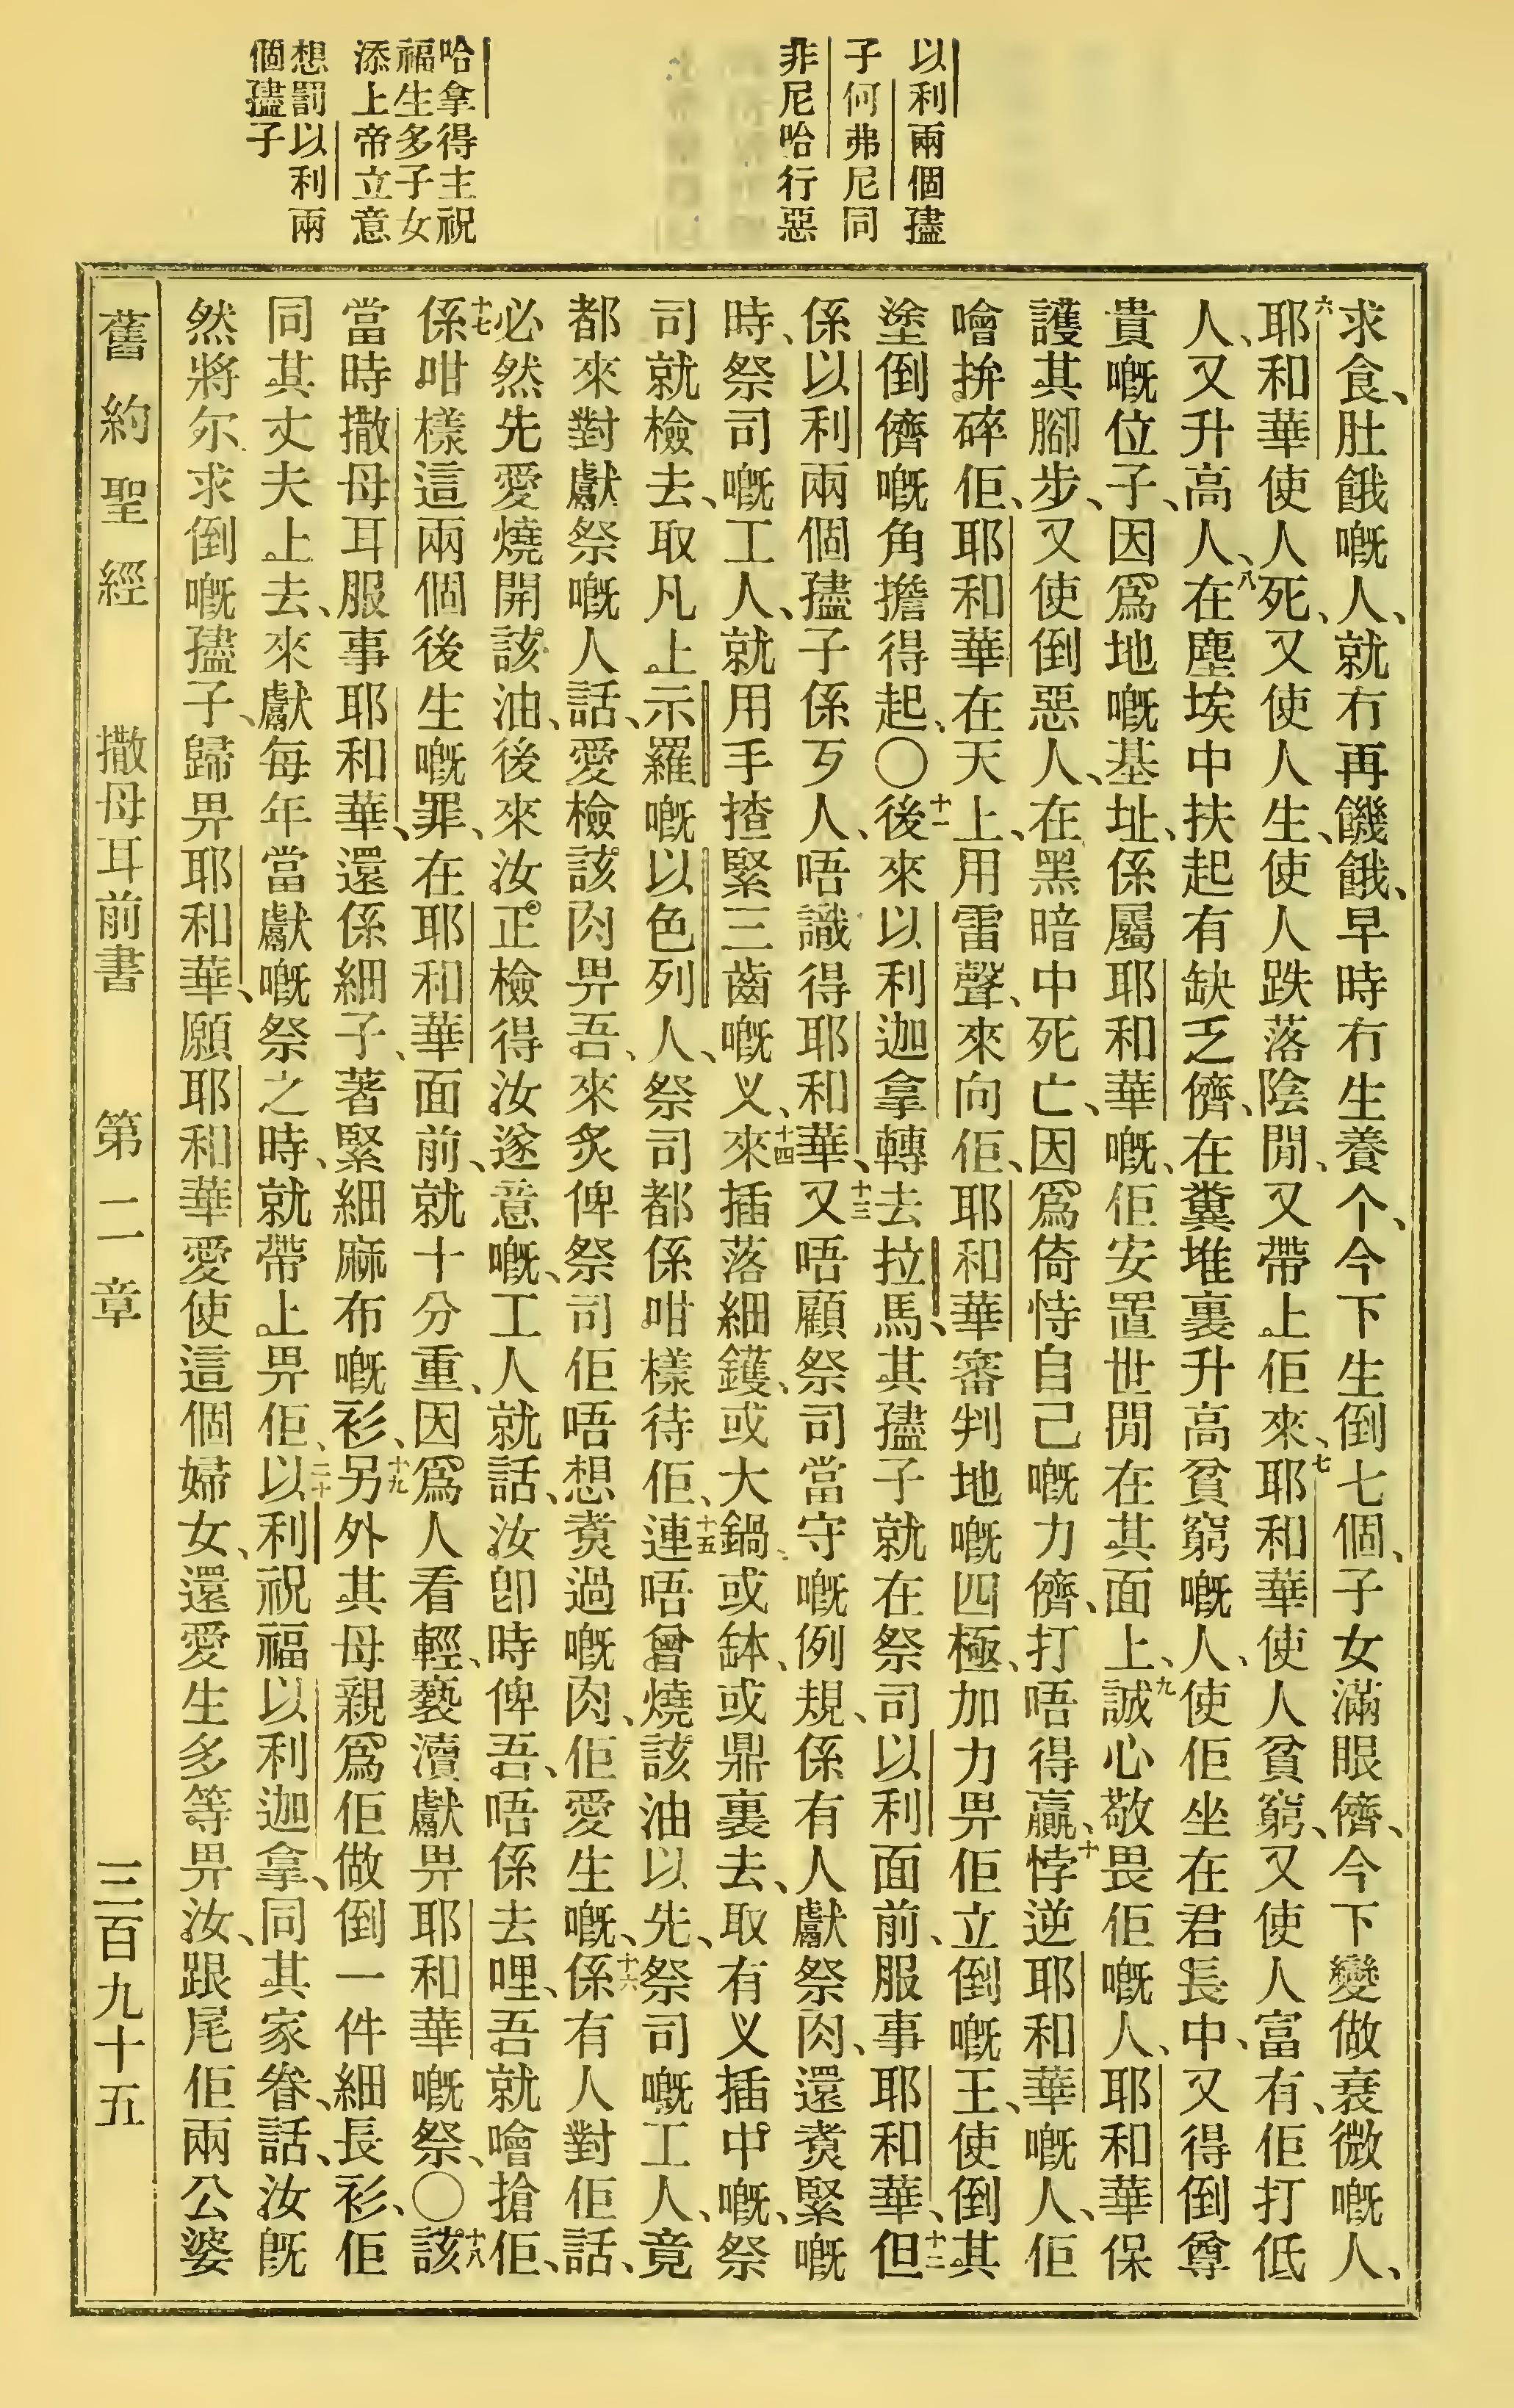 以利兩個㜽
子何弗尼同
非尼哈行惡
哈拿得主祝
福生多子女
添上帝立意
想罰以利兩
個㜽子
求食、肚餓嘅人、就冇再饑餓、早時冇生養个、今下生倒七個、子女滿眼儕、今下變做衰微嘅人、
六耶和華使人死、又使人生、使人跌落陰間、又帶上佢來、七耶和華使人貧窮、又使人富有、佢打低
人、又升高人、八在塵埃中扶起有缺乏儕、在糞堆裏升高貧窮嘅人、使佢坐在君長中、又得倒尊
貴嘅位子、因爲地嘅基址、係屬耶和華嘅、佢安置世間在其面上、九誠心敬畏佢嘅人、耶和華保
護其腳步、又使倒惡人、在黑暗中死亡、因爲倚恃自己嘅力儕、打唔得贏、十悖逆耶和華嘅人、佢
噲拚碎佢、耶和華在天上、用雷聲、來向佢、耶和華審判地嘅四極、加力畀佢立倒嘅王、使倒其
塗倒儕嘅角擔得起、〇十一後來以利迦拿轉去拉馬、其㜽子就在祭司以利面前、服事耶和華、十二但
係以利兩個㜽子係歹人、唔識得耶和華、十三又唔顧祭司當守嘅例規、係有人獻祭肉、還煑緊嘅
時、祭司嘅工人、就用手揸緊三齒嘅义、十四來插落細鑊、或大鍋、或缽、或鼎裏去、取有义插中嘅、祭
司就檢去、取凡上示羅嘅以色列人、祭司都係咁樣待佢、十五連唔曾燒該油以先、祭司嘅工人、竟
都來對獻祭嘅人話、愛檢該肉畀吾、來炙俾祭司佢唔想煑過嘅肉、佢愛生嘅、十六係有人對佢話、
必然先愛燒開該油、後來汝正檢得汝遂意嘅、工人就話、汝卽時俾吾、唔係去哩、吾就噲搶佢、
十七係咁樣這兩個後生嘅罪、在耶和華面前、就十分重、因爲人看輕、褻瀆獻畀耶和華嘅祭、〇十八該
當時撒母耳服事耶和華、還係細子、著緊細麻布嘅衫、十九另外其母親爲佢做倒一件細長衫、佢
同其丈夫上去、來獻每年當獻嘅祭之時、就帶上畀佢、二十以利祝福以利迦拿、同其家眷、話、汝旣
然將尔求倒嘅㜽子、歸畀耶和華、願耶和華愛使這個婦女、還愛生多等畀汝、跟尾佢兩公婆
舊約聖經　撒母耳前書　第二章　三百九十五